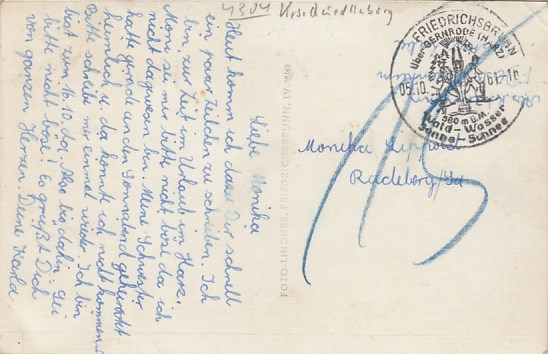 4304 Krs. Quedlinburg
Liebe Monika
Heut komm ich dazu Dir schnell
ein paar Zeilen zu schreiben. Ich
bin zur Zeit in Urlaub im Harz.
Moni sei mir bitte nicht böse da ich
nicht dagewesen bin. Meine Schwester
hatte gerade an den Sonnabend geheiratet
heimlich u. da konnte ich nicht kommen.
Bitte schreibe mir einmal wieder. Ich bin
bis zum 16.10. da. Also bis dahin. Sei
bitte nicht böse! Es grüßt Dich
von ganzen Herzen. Deine Karla
FRIEDRICHSBRUNN
über GERNRODE (HARZ)
05.10.
580 m ü.M.
Wald - Wasser
Sonne - Schnee
Monika
Radeberg/Sa
15